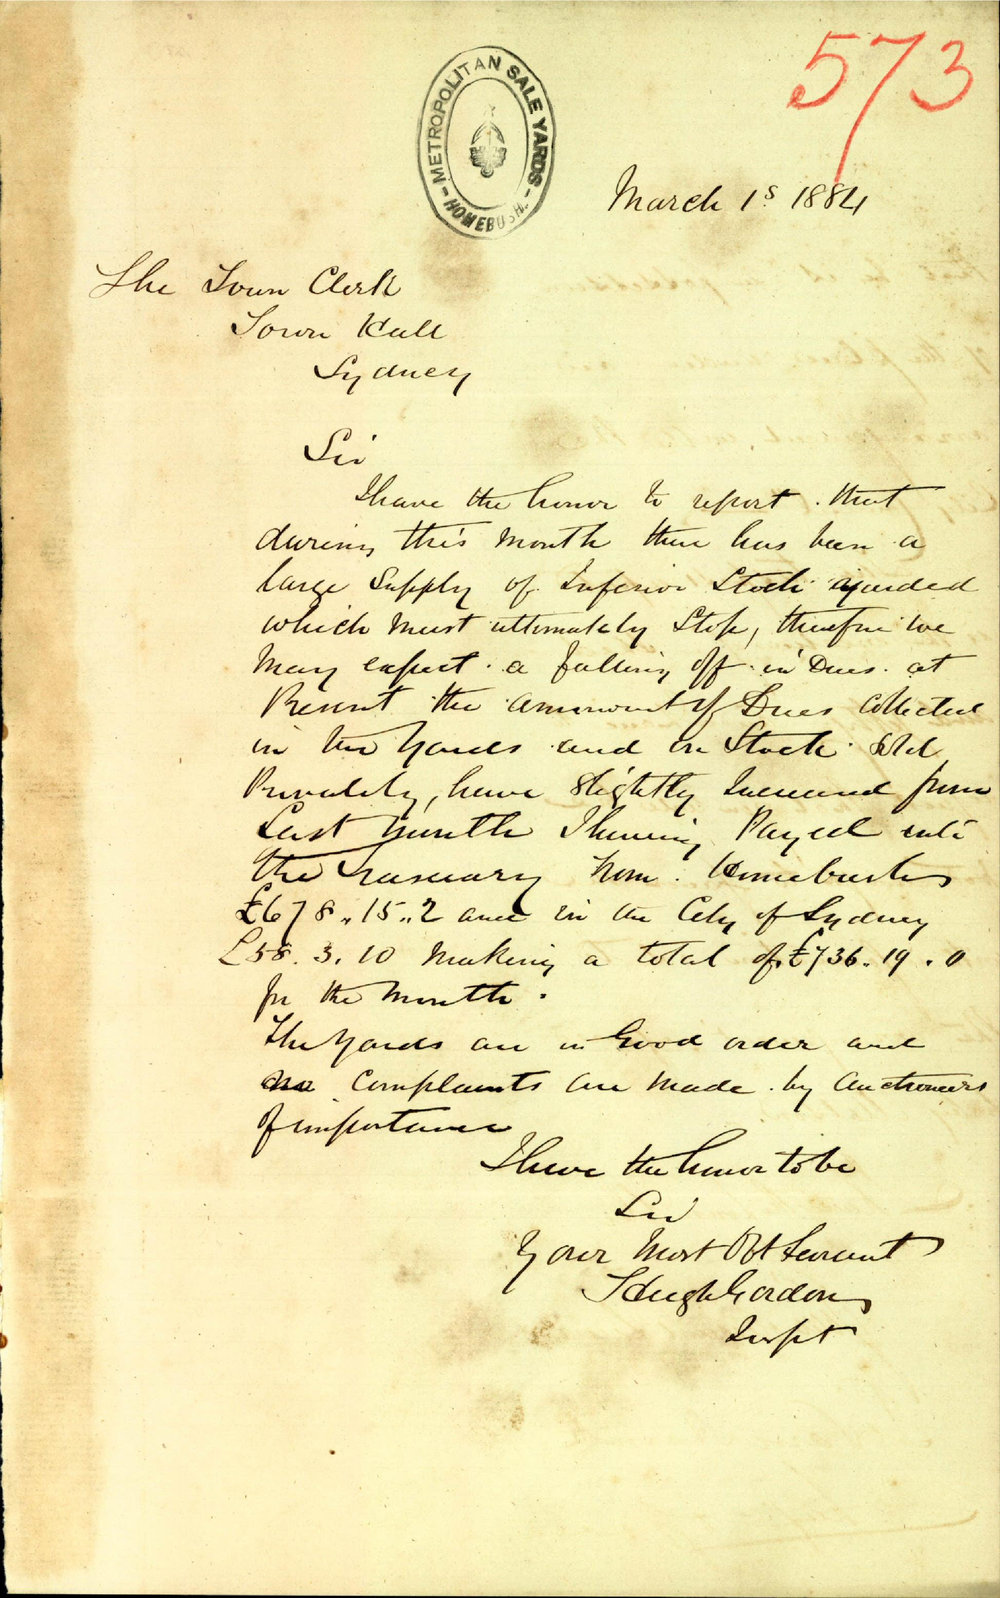 573
METROPOLITAN SALE YARDS
HOMEBUSH.
March 1s 1884
The Town Clerk
Town Hall
Sydney
Sir
I have the honor to report that
during this Month there has been a
large Supply of Inferior Stock yarded
which must ultimately Stop, therefore we
may expect a falling off in Dues at
Present the amount of Dues Collected
in the Yards and on Stock Sold
Privately, have Slightly Increased from
Last Month I having Payed into
the Treasurary from Homebush
£678..15..2 and in the City of Sydney
£58.3.10 making a total of £736.19.0
for the Month.
The Yards are in Good order and
no Complaints are made by Auctioneers
of importance
I have the honor to be
Sir
Your Most Obt Servant
Hugh Gordon
Inspt